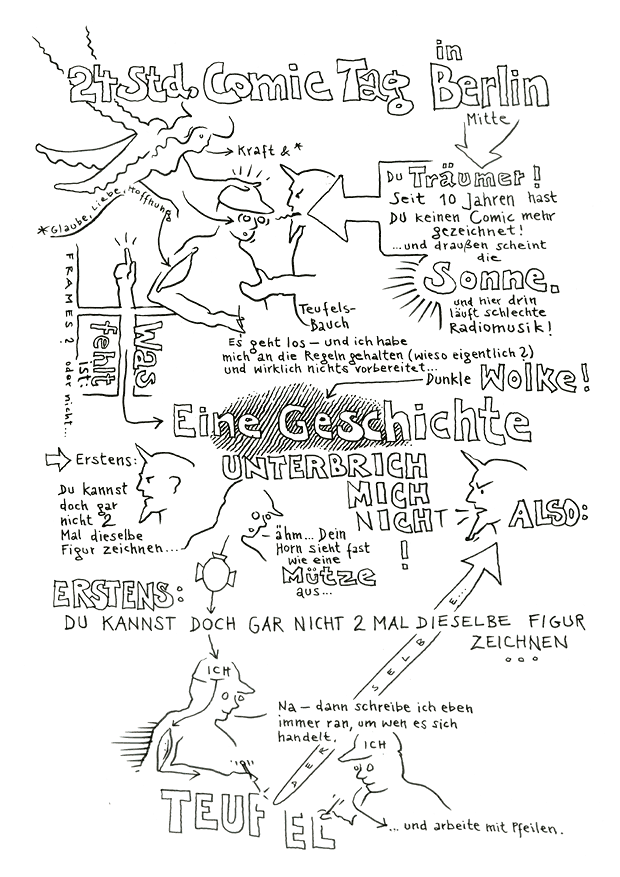 24 Std. Comic Tag
in
Berlin
Mitte
Kraft & *
* Glaube, Liebe, Hoffnung
Du Träumer!
Seit 10 Jahren hast
DU keinen Comic mehr
gezeichnet!
...und draußen scheint
die
Sonne.
und hier drin
läuft schlechte
Radiomusik!
Teufels-
Bauch
FRAMES? oder nicht...
Was
fehlt
ist:
Es geht los – und ich habe
mich an die Regeln gehalten (wieso eigentlich?)
und wirklich nichts vorbereitet...
Dunkle Wolke!
Eine Geschichte
Erstens:
Du kannst
doch gar
nicht 2
Mal dieselbe
Figur zeichnen....
UNTERBRICH
MICH
NICHT
!
ähm... Dein
Horn sieht fast
wie eine
Mütze
aus...
ALSO:
ERSTENS:
DU KANNST DOCH GAR NICHT 2 MAL DIESELBE FIGUR
ZEICHNEN
...
ICH
Na – dann schreibe ich eben
immer ran, um wen es sich
handelt.
DERSELBE...
ICH
TEUFEL
... und arbeite mit Pfeilen.